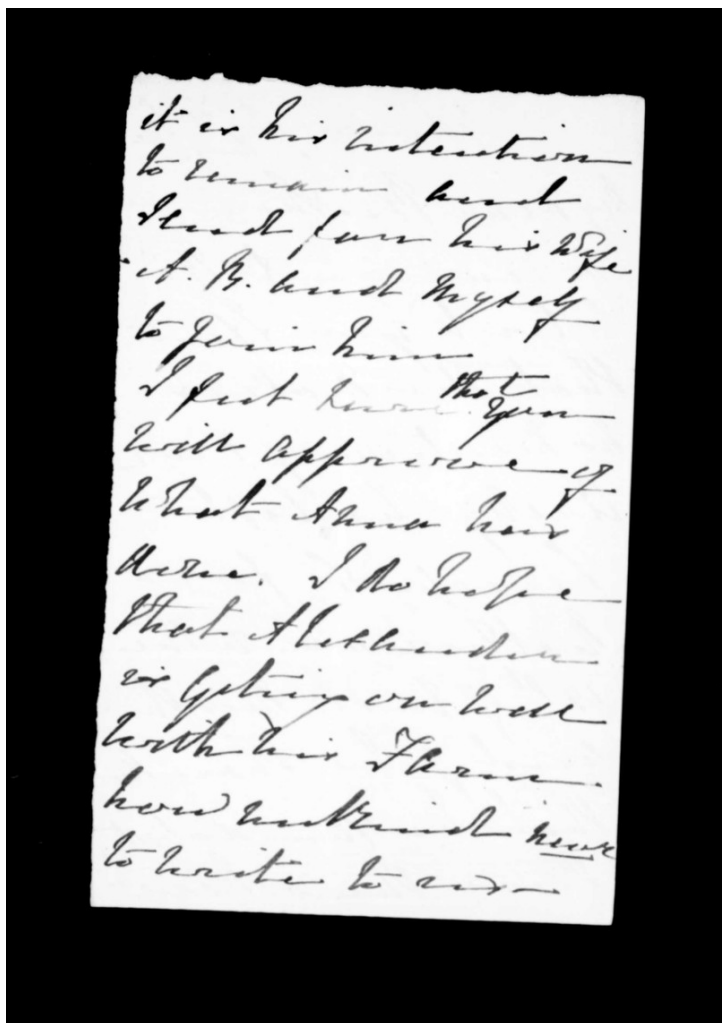 it is his intention
to remain and
send for his Wife
A. B. and Myself
to join him
I feel sure that you
will approve of
what Anna has
done. I do hope
that Alexander
is getting on well
with his Farm.
how unkind never
to write to us -